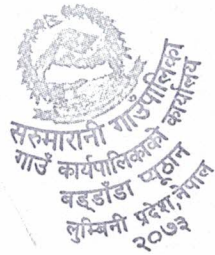 सरुमारानी गाउँपालिका
गाउँ कार्यपालिकाको कार्यालय
बड्डाँडा प्यूठान
लुम्बिनी प्रदेश, नेपाल
२०७३